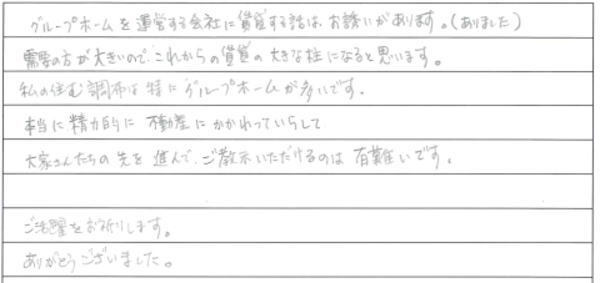 グループホームを運営する会社に賃貸する話は、お誘いがあります。(ありました)
需要の方が大きいので、これからの賃貸の大きな柱になると思います。
私の住む調布は特にグループホームが多いです。
本当に精力的に不動産にかかわっていらして
大家さんたちの先を進んで、ご教示いただけるのは有難いです。
ご活躍をお祈りします。
ありがとうございました。